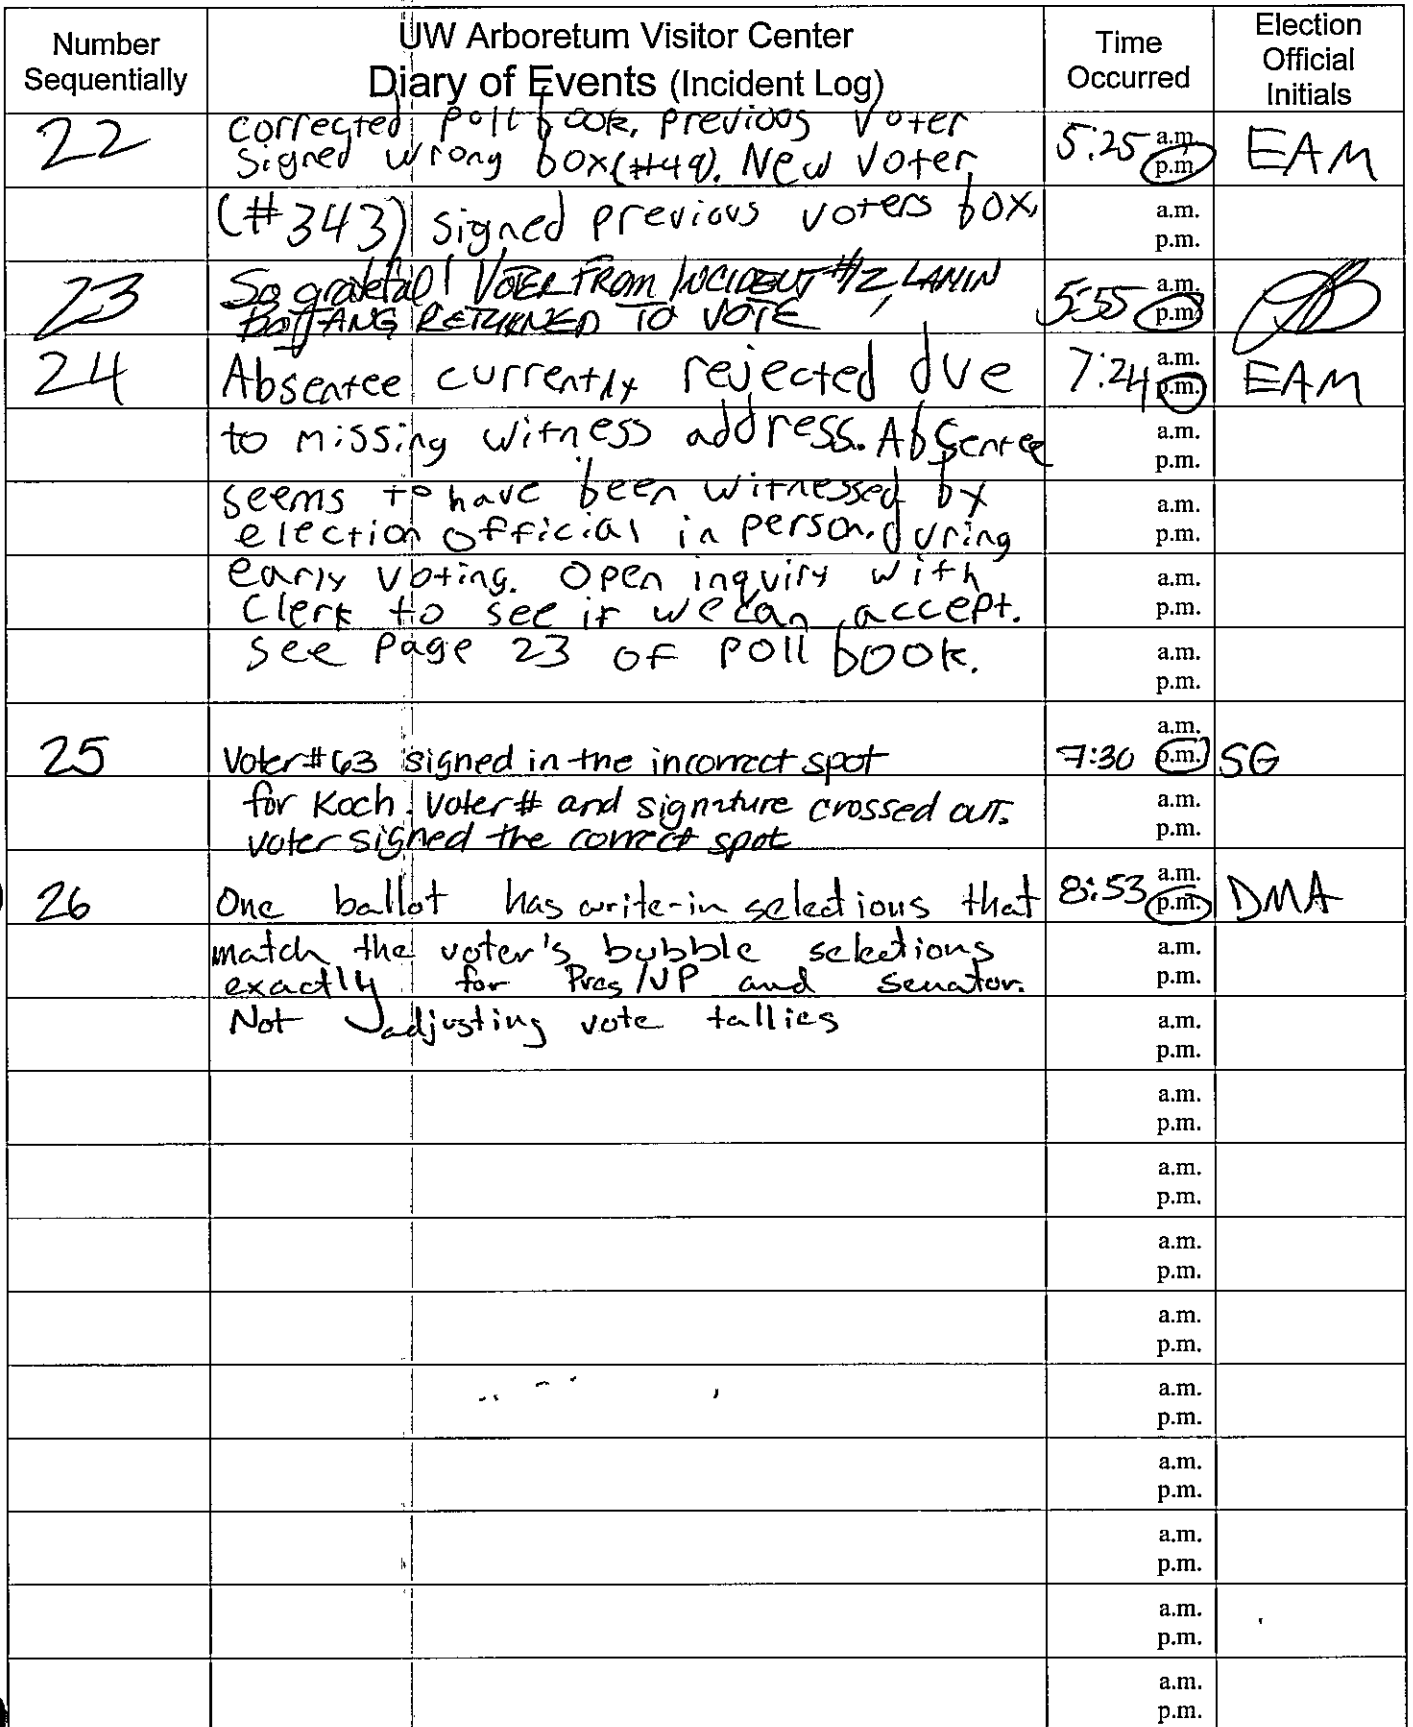 Number Sequentially
UW Arboretum Visitor Center
Diary of Events (Incident Log)
Time Occurred
Election Official Initials
22
corrected poll book. previous voter
signed wrong box (#49). New voter
5:25 a.m. p.m.
EAM
(#343) signed previous voters box.
a.m.
p.m.
23
So grateful! VOTER FROM INCIDENT #12,
RETURNED TO VOTE
5:55 a.m. p.m.
24
Absentee currently rejected due
7:24 a.m. p.m.
EAM
to missing witness address. Absentee
a.m.
p.m.
seems to have been witnessed by
election official in person during
a.m.
p.m.
early voting. Open inquiry with
Clerk to see if we can accept.
a.m.
p.m.
see page 23 of poll book.
a.m.
p.m.
25
Voter #63 signed in the incorrect spot
7:30 a.m. p.m.
SG
for Koch. Voter # and signature crossed out.
voter signed the correct spot
a.m.
p.m.
26
One ballot has write-in selections that
8:53 a.m. p.m.
DMA
match the voter's bubble selections
exactly for Pres/VP and Senator.
a.m.
p.m.
Not adjusting vote tallies
a.m.
p.m.
a.m.
p.m.
a.m.
p.m.
a.m.
p.m.
a.m.
p.m.
a.m.
p.m.
a.m.
p.m.
a.m.
p.m.
a.m.
p.m.
a.m.
p.m.